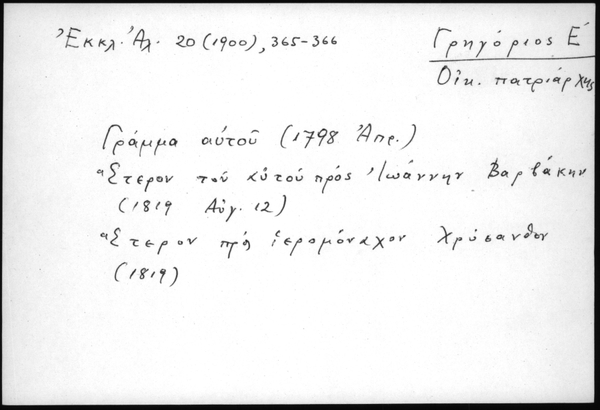 Ἐκκλ. Ἀλ. 20 (1900), 365-366
Γρηγόριος Ε΄
Οἰκ. πατριάρχης
Γράμμα αὐτοῦ (1798 Ἀπρ.)
Ἕτερον τοῦ αὐτοῦ πρὸς Ἰωάννην Βαρβάκην
(1819 Αὐγ. 12)
Ἕτερον πρὸς ἱερομόναχον Χρύσανθον
(1819)